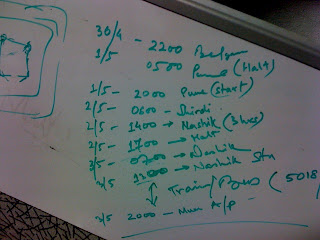 30/4 - 2200 Belgum
1/5 0500 Pune (Halt)
1/5 - 2000 Pune (start)
2/5 - 0600 - Shirdi
2/5 - 1400 → Nashik (3 hrs)
2/5 - 1700 → Halt
3/5 - 0700 → Nashik
3/5 → Nashik Stn
Train/Buses (5018
3/5 2000 - Mum A/p